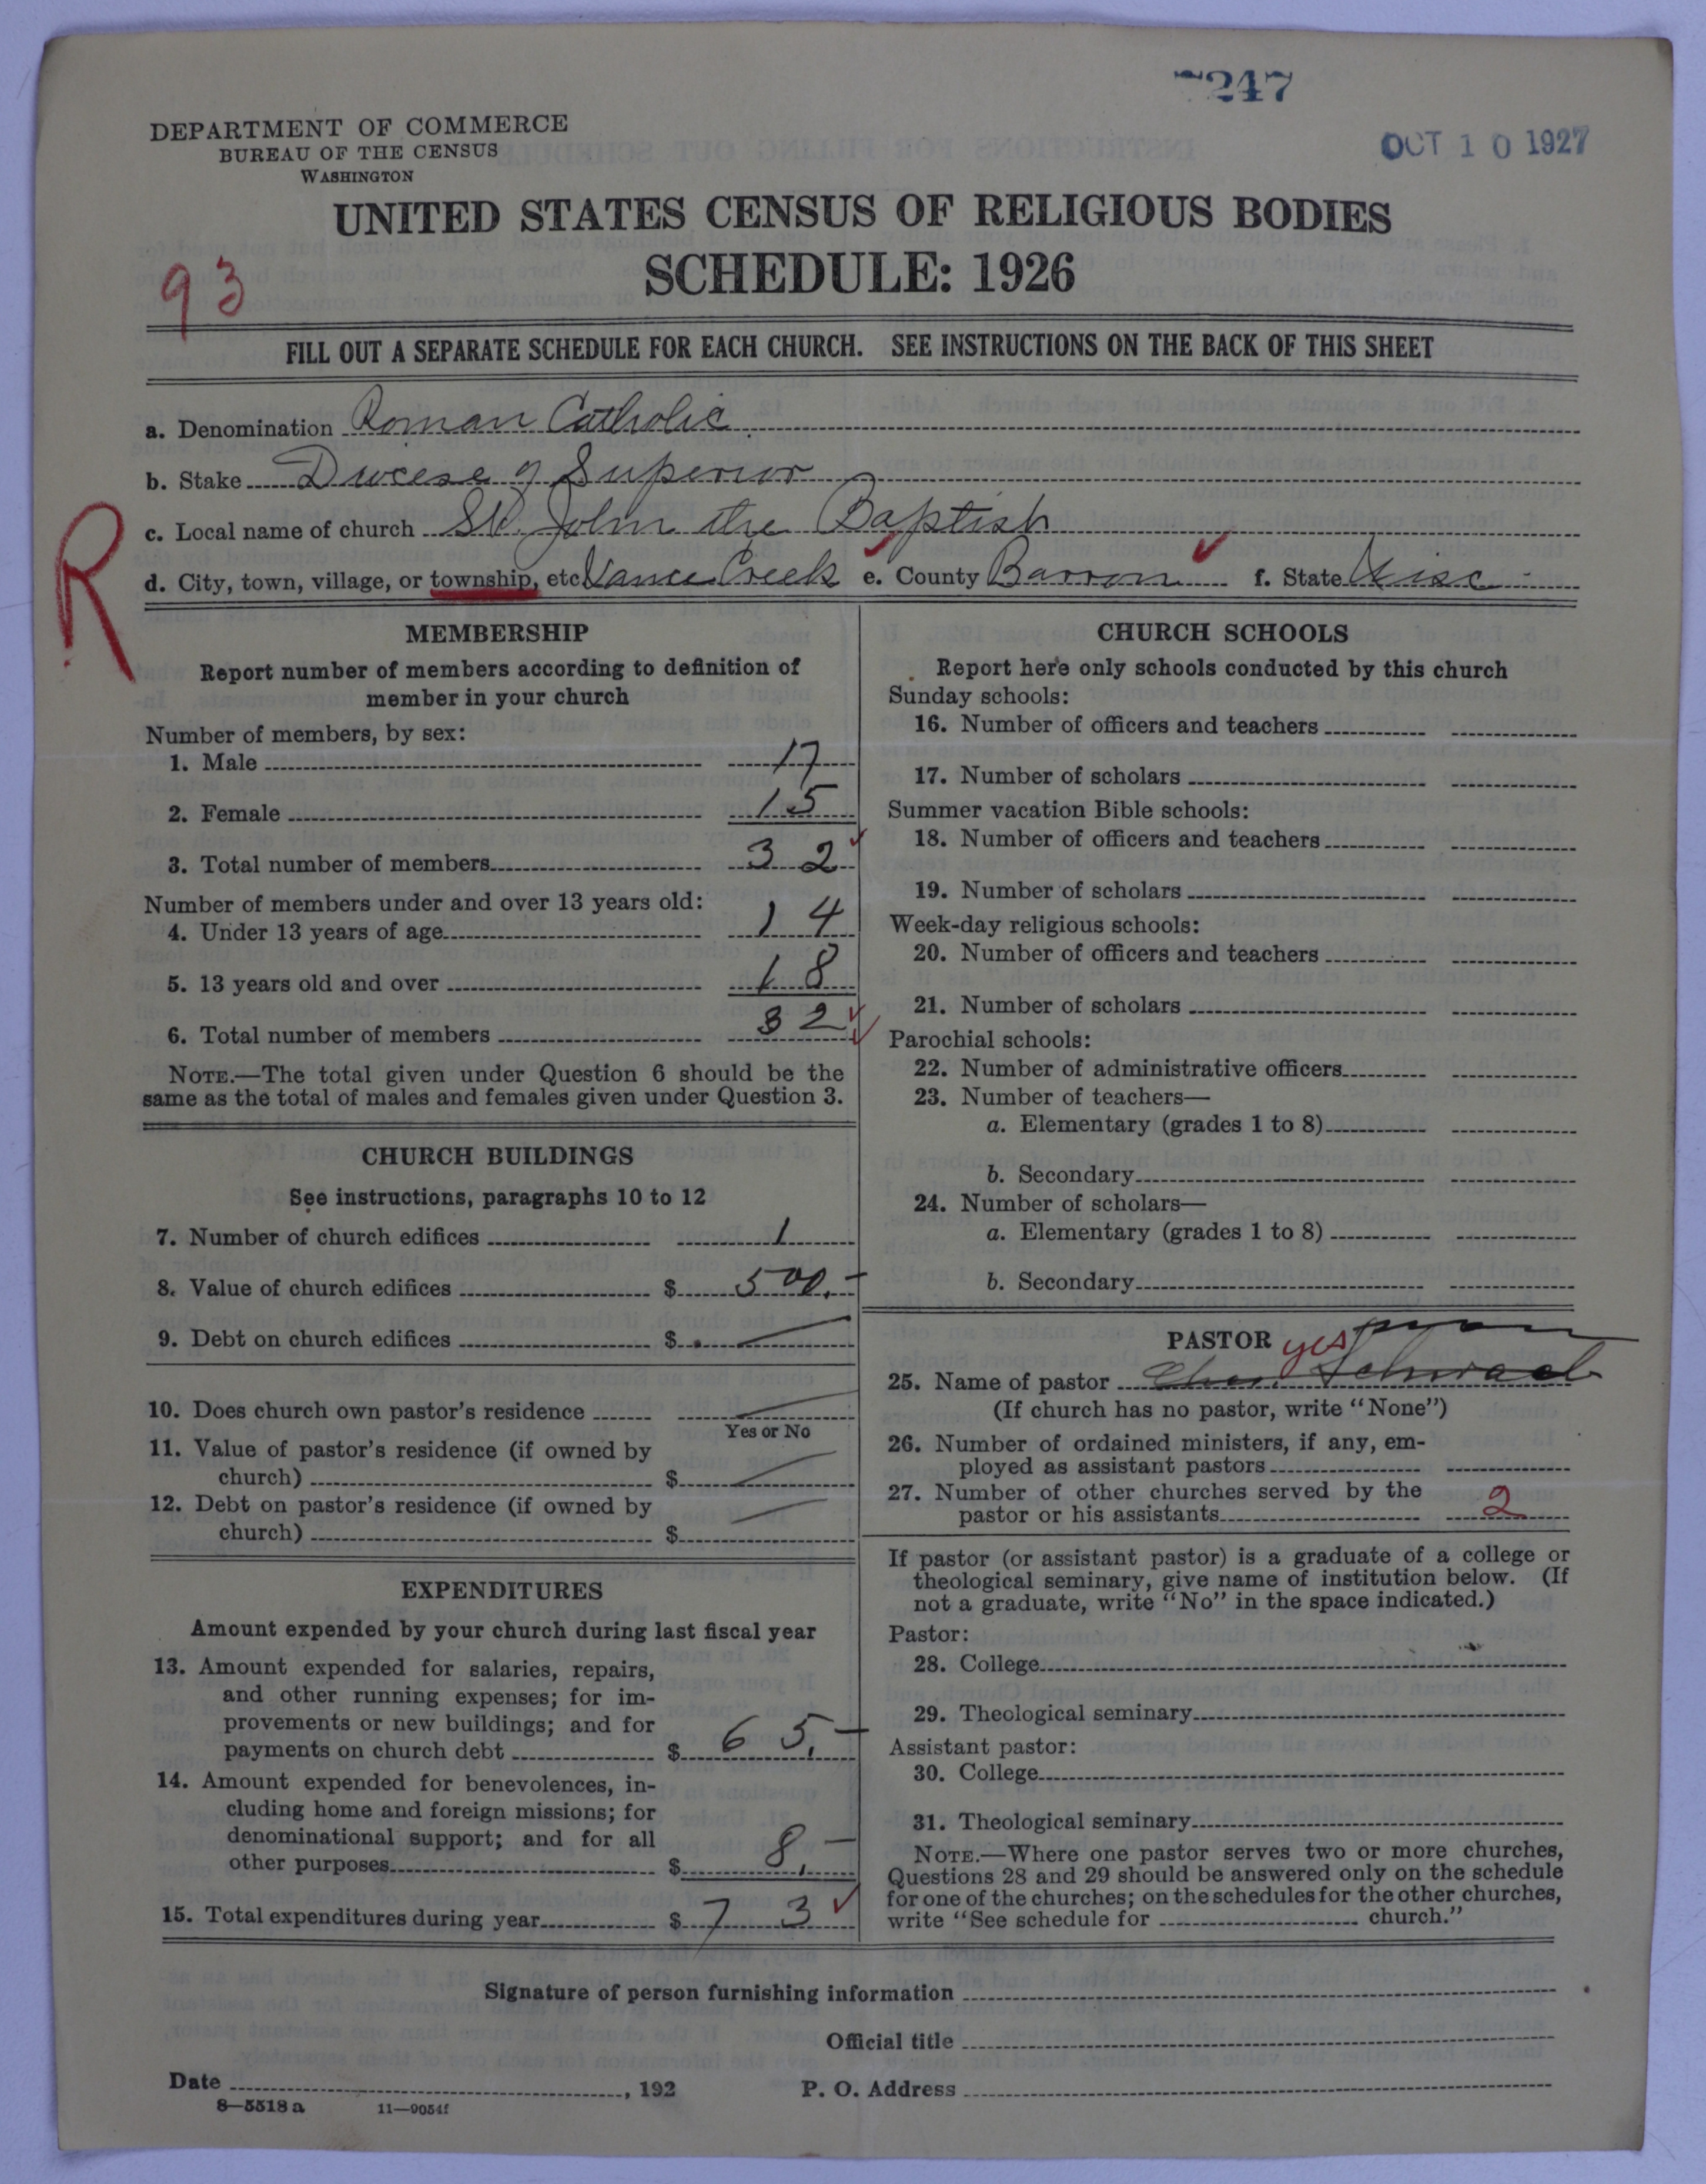 247
OCT 10 1927
DEPARTMENT OF COMMERCE
BUREAU OF THE CENSUS
WASHINGTON
UNITED STATES CENSUS OF RELIGIOUS BODIES
SCHEDULE: 1926
93
FILL OUT A SEPARATE SCHEDULE FOR EACH CHURCH. SEE INSTRUCTIONS ON THE BACK OF THIS SHEET
a. Denomination Roman Catholic
b. Stake Diocese of Superior
c. Local name of church St. John the Baptist
R
d. City, town, village, or township, etc. Vance Creek e. County Barron f. State Wisc
MEMBERSHIP
Report number of members according to definition of
member in your church
Number of members, by sex:
1. Male 17
2. Female 15
3. Total number of members 32
Number of members under and over 13 years old:
4. Under 13 years of age 14
5. 13 years old and over 18
6. Total number of members 32
NOTE.—The total given under Question 6 should be the
same as the total of males and females given under Question 3.
CHURCH BUILDINGS
See instructions, paragraphs 10 to 12
7. Number of church edifices 1
8. Value of church edifices $ 500.—
9. Debt on church edifices $ —
10. Does church own pastor's residence —
Yes or No
11. Value of pastor's residence (if owned by
church) $ —
12. Debt on pastor's residence (if owned by
church) $ —
EXPENDITURES
Amount expended by your church during last fiscal year
13. Amount expended for salaries, repairs,
and other running expenses; for im-
provements or new buildings; and for
payments on church debt $ 65.—
14. Amount expended for benevolences, in-
cluding home and foreign missions; for
denominational support; and for all
other purposes $ 8.—
15. Total expenditures during year $ 73
CHURCH SCHOOLS
Report here only schools conducted by this church
Sunday schools:
16. Number of officers and teachers
17. Number of scholars
Summer vacation Bible schools:
18. Number of officers and teachers
19. Number of scholars
Week-day religious schools:
20. Number of officers and teachers
21. Number of scholars
Parochial schools:
22. Number of administrative officers
23. Number of teachers—
a. Elementary (grades 1 to 8)
b. Secondary
24. Number of scholars—
a. Elementary (grades 1 to 8)
b. Secondary
PASTOR yes
25. Name of pastor Chas. Schwab
(If church has no pastor, write "None")
26. Number of ordained ministers, if any, em-
ployed as assistant pastors
27. Number of other churches served by the
pastor or his assistants 2
If pastor (or assistant pastor) is a graduate of a college or
theological seminary, give name of institution below. (If
not a graduate, write "No" in the space indicated.)
Pastor:
28. College
29. Theological seminary
Assistant pastor:
30. College
31. Theological seminary
NOTE.—Where one pastor serves two or more churches,
Questions 28 and 29 should be answered only on the schedule
for one of the churches; on the schedules for the other churches,
write "See schedule for church."
Signature of person furnishing information
Official title
Date , 192 P. O. Address
8—5518 a 11—9054f